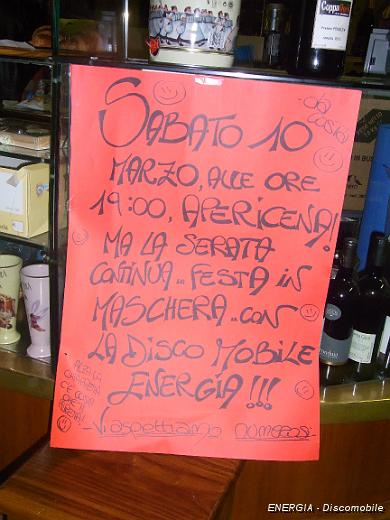 SABATO 10
MARZO, ALLE ORE
19:00, APERICENA!
MA LA SERATA
CONTINUA.. FESTA IN
MASCHERA.. CON
LA DISCO MOBILE
ENERGIA!!!
Vi aspettiamo numerosi
da
ENERGIA - Discomobile